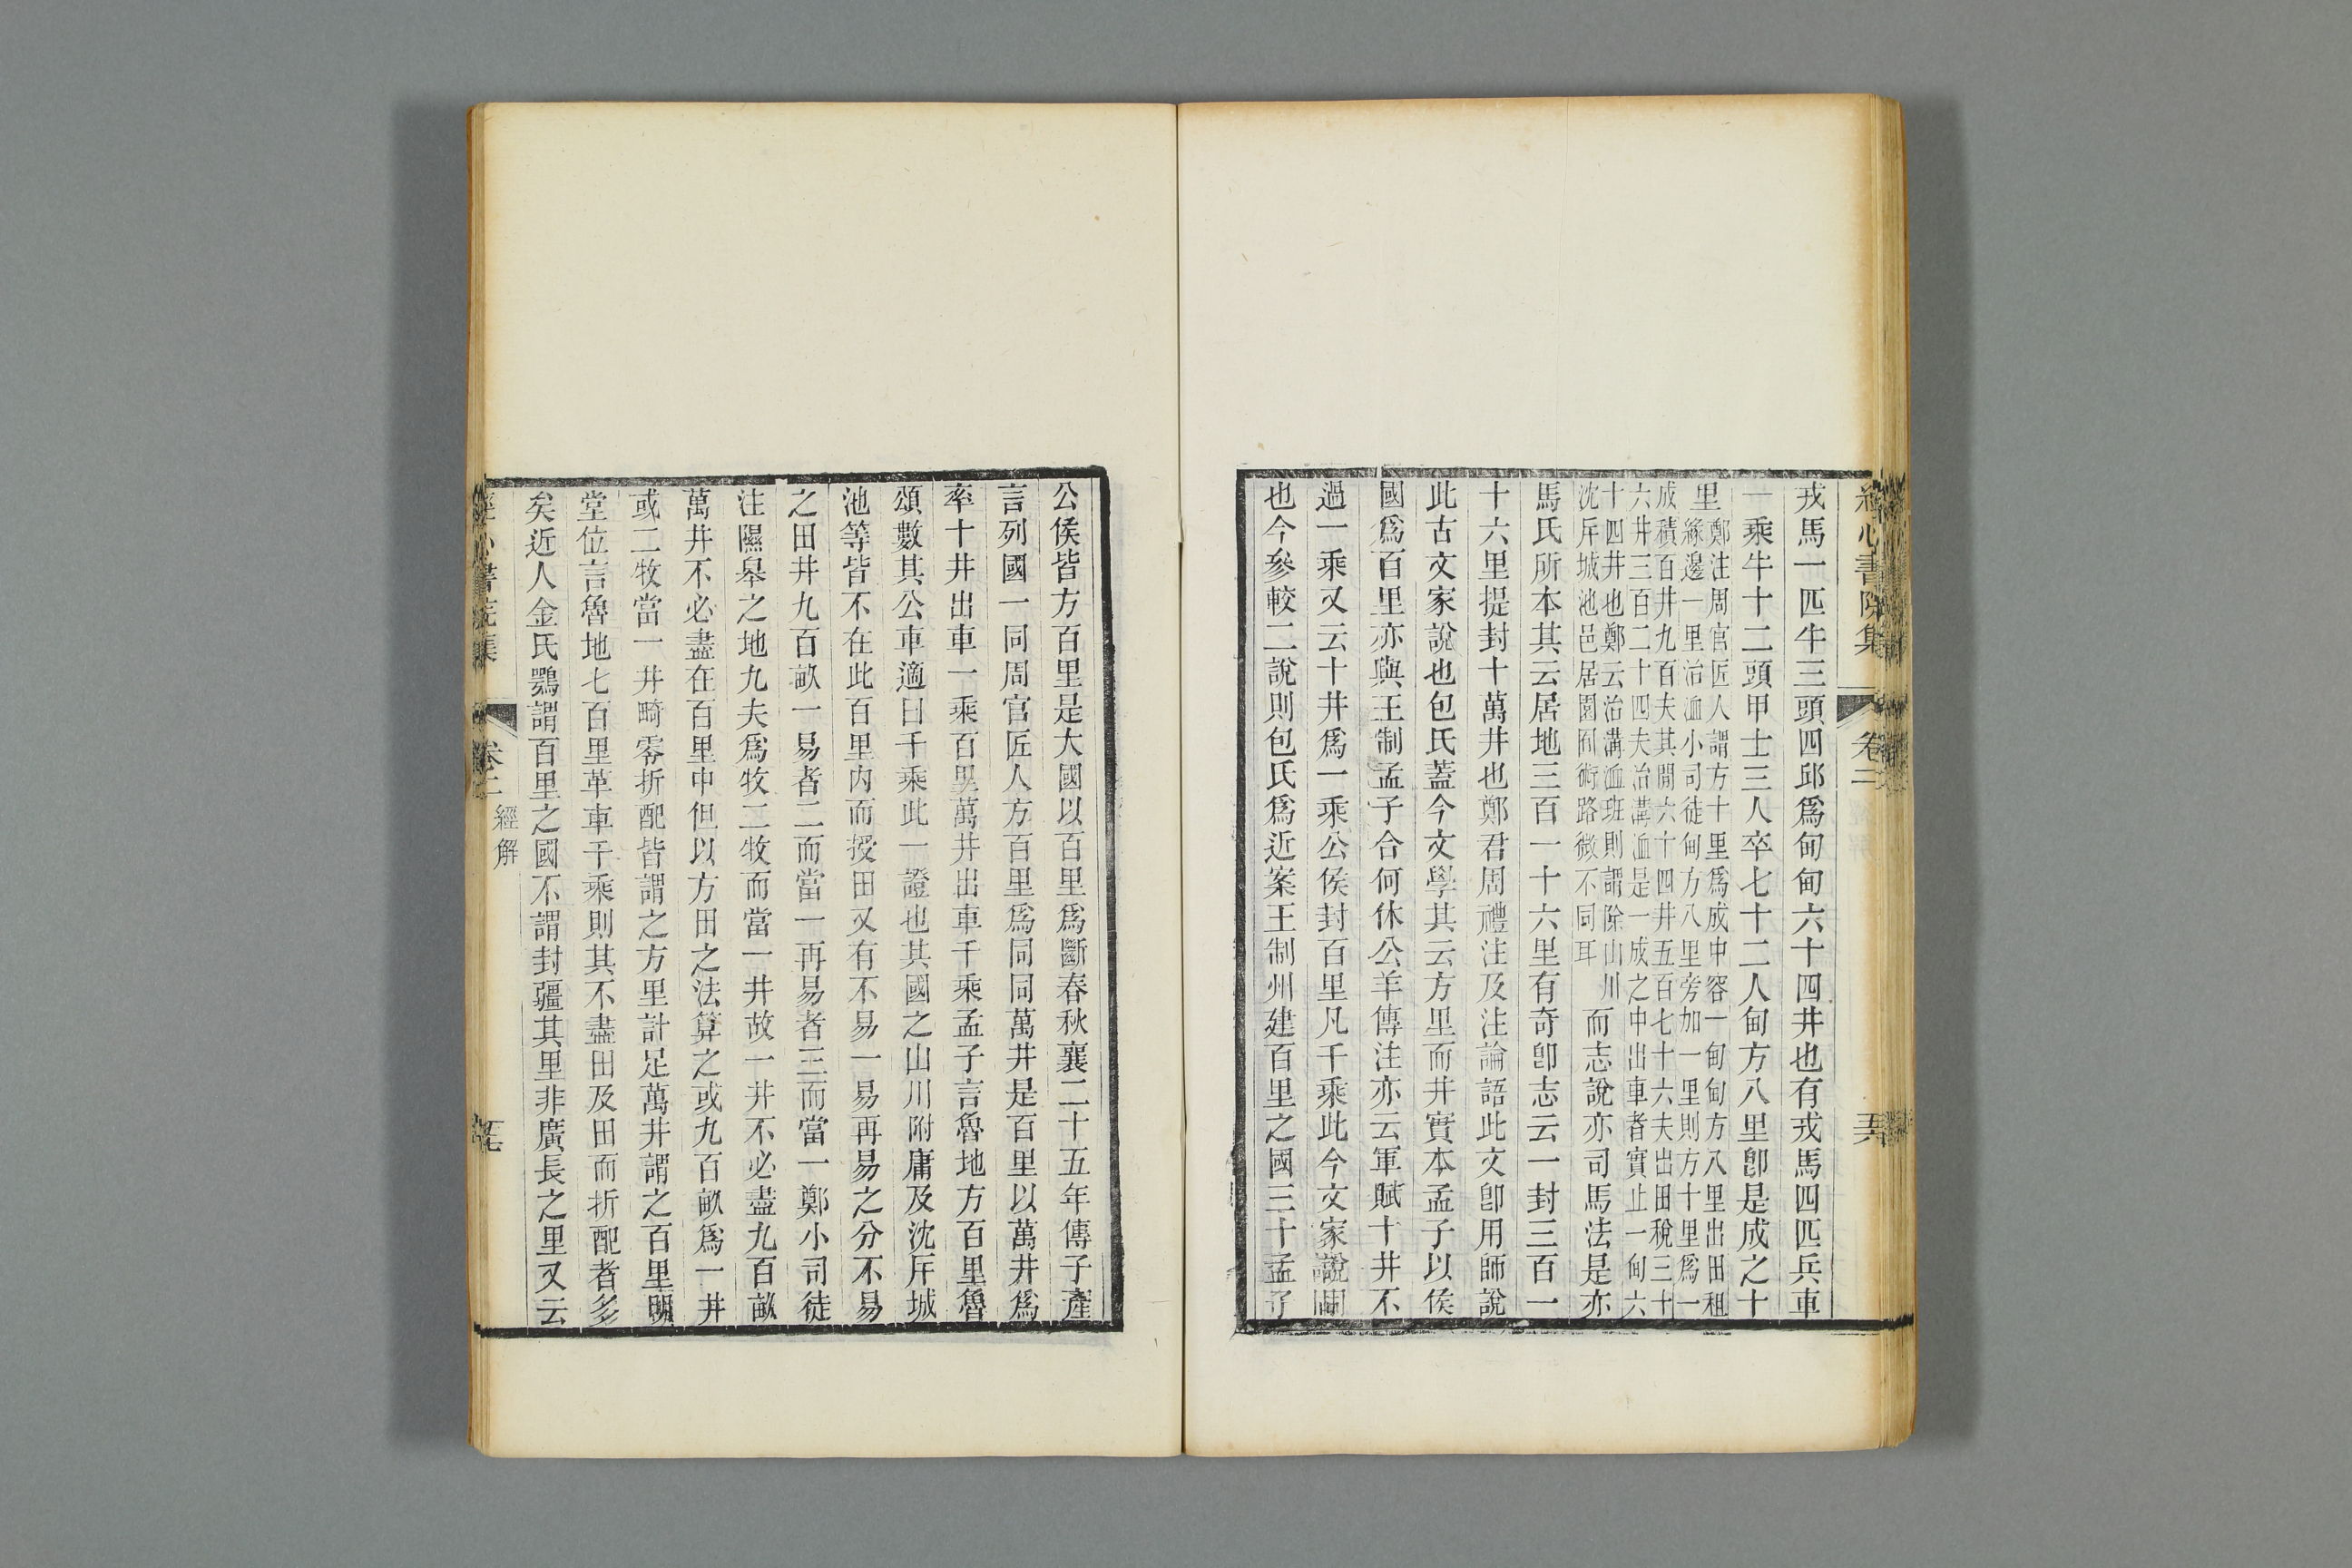 經心書院集
卷二
戎馬一匹牛三頭四邱爲甸甸六十四井也有戎馬四匹兵車
一乘牛十二頭甲士三人卒七十二人甸方八里卽是成之十
里
鄭注周官匠人謂方十里爲成中容一甸甸方八里出田租
緣邊一里治洫小司徒甸方八里旁加一里則方十里爲一
成積百井九百夫其閒六十四井五百七十六夫出田稅三十
六井三百二十四夫治溝洫是一成之中出車者實止一甸六
十四井也鄭云治溝洫班則謂除山川
沈斥城池邑居園囿術路微不同耳
而志說亦司馬法是亦
馬氏所本其云居地三百一十六里有奇卽志云一封三百一
十六里提封十萬井也鄭君周禮注及注論語此文卽用師說
此古文家說也包氏蓋今文學其云方里而井實本孟子以侯
國爲百里亦與王制孟子合何休公羊傳注亦云軍賦十井不
過一乘又云十井爲一乘公侯封百里凡千乘此今文家說同
也今參較二說則包氏爲近案王制州建百里之國三十孟子
公侯皆方百里是大國以百里爲斷春秋襄二十五年傳子產
言列國一同周官匠人方百里爲同同萬井是百里以萬井爲
率十井出車一乘百里萬井出車千乘孟子言魯地方百里魯
頌數其公車適曰千乘此一證也其國之山川附庸及沈斥城
池等皆不在此百里内而授田又有不易一易再易之分不易
之田井九百畝一易者二而當一再易者三而當一鄭小司徒
注隰皋之地九夫爲牧二牧而當一井故一井不必盡九百畝
萬井不必盡在百里中但以方田之法算之或九百畝爲一井
或二牧當一井畸零折配皆謂之方里計足萬井謂之百里明
堂位言魯地七百里革車千乘則其不盡田及田而折配者多
矣近人金氏鶚謂百里之國不謂封疆其里非廣長之里又云
經心書院集
卷二
經解